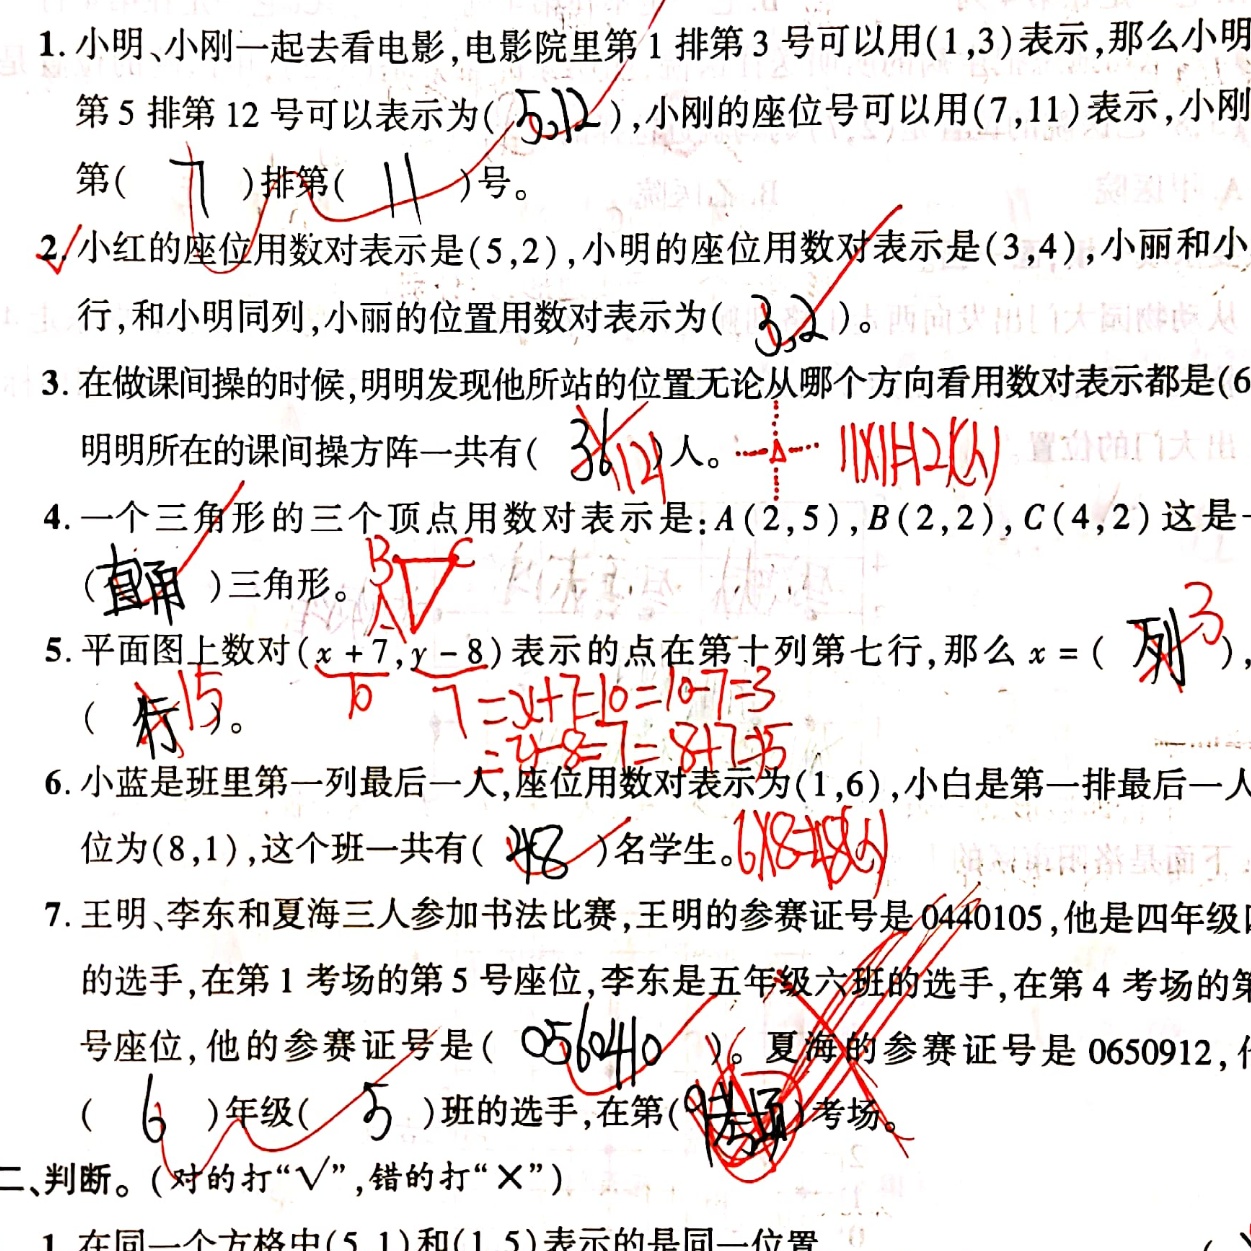 1. 小明、小刚一起去看电影,电影院里第1排第3号可以用(1,3)表示,那么小明
第5排第12号可以表示为( 5,12 ),小刚的座位号可以用(7,11)表示,小刚
第( 7 )排第( 11 )号。
2. 小红的座位用数对表示是(5,2),小明的座位用数对表示是(3,4),小丽和小
行,和小明同列,小丽的位置用数对表示为( 3,2 )。
3. 在做课间操的时候,明明发现他所站的位置无论从哪个方向看用数对表示都是(6
明明所在的课间操方阵一共有( 36 121 )人。 11×11=121(人)
4. 一个三角形的三个顶点用数对表示是:A(2,5),B(2,2),C(4,2)这是
(直角)三角形。 B C
A
5. 平面图上数对(x+7,y-8)表示的点在第十列第七行,那么x=( 列 3 ),
( 行 15 )。 10 7 =x+7=10=10-7=3
=y-8=7=8+7=15
6. 小蓝是班里第一列最后一人,座位用数对表示为(1,6),小白是第一排最后一人
位为(8,1),这个班一共有( 48 )名学生。 6×8=48(人)
7. 王明、李东和夏海三人参加书法比赛,王明的参赛证号是0440105,他是四年级
的选手,在第1考场的第5号座位,李东是五年级六班的选手,在第4考场的第
号座位,他的参赛证号是( 0560410 )。夏海的参赛证号是0650912,
( 6 )年级( 5 )班的选手,在第( 9 )考场。
二、判断。(对的打“√”,错的打“×”)
1. 在同一个方格中(5,1)和(1,5)表示的是同一位置